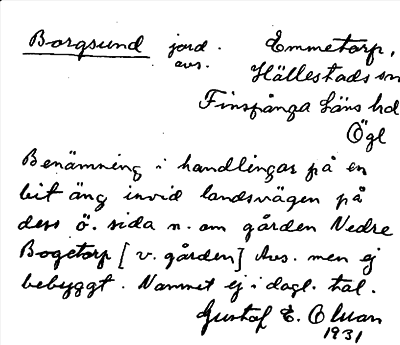 Borgsund jord. Emmetorp,
avs. Hällestads sn
Finspånga läns hd
Ögl
Benämning i handlingar på en
bit äng invid landsvägen på
dess ö. sida n. om gården Nedre
Bogetorp [v. gården] Avs. men ej
bebyggt. Namnet ej i dagl. tal.
Gustaf E. Olson
1931